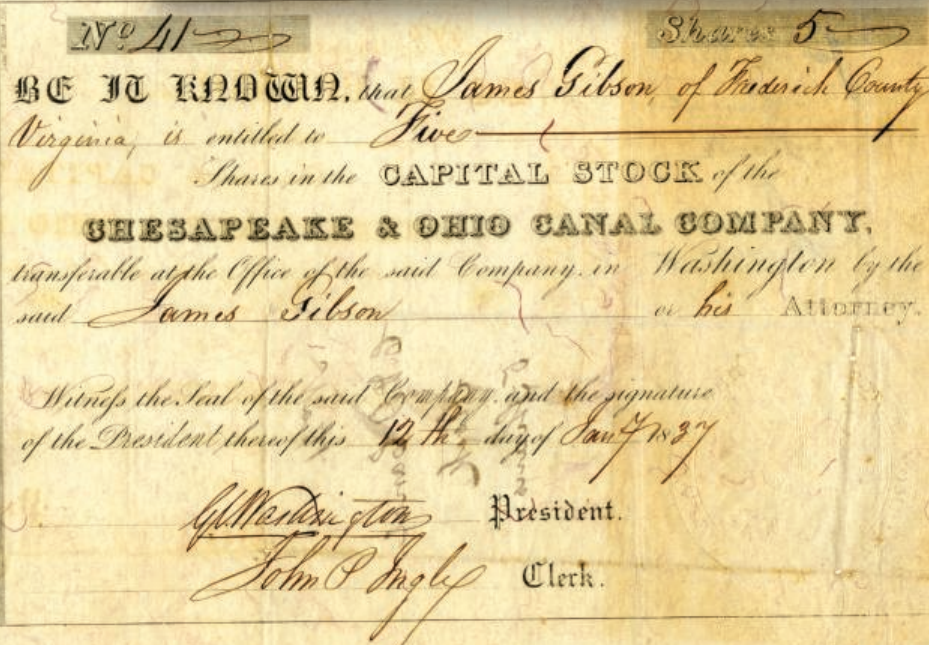 No 41
Shares 5
BE IT KNOWN, that James Gibson, of Frederick County
Virginia, is entitled to Five
Shares in the CAPITAL STOCK of the
CHESAPEAKE & OHIO CANAL COMPANY,
transferable at the Office of the said Company, in Washington by the
said James Gibson or his Attorney.
Witness the Seal of the said Company, and the signature
of the President thereof this 12th day of Jany 1837
G C Washington President.
John P Ingle Clerk.